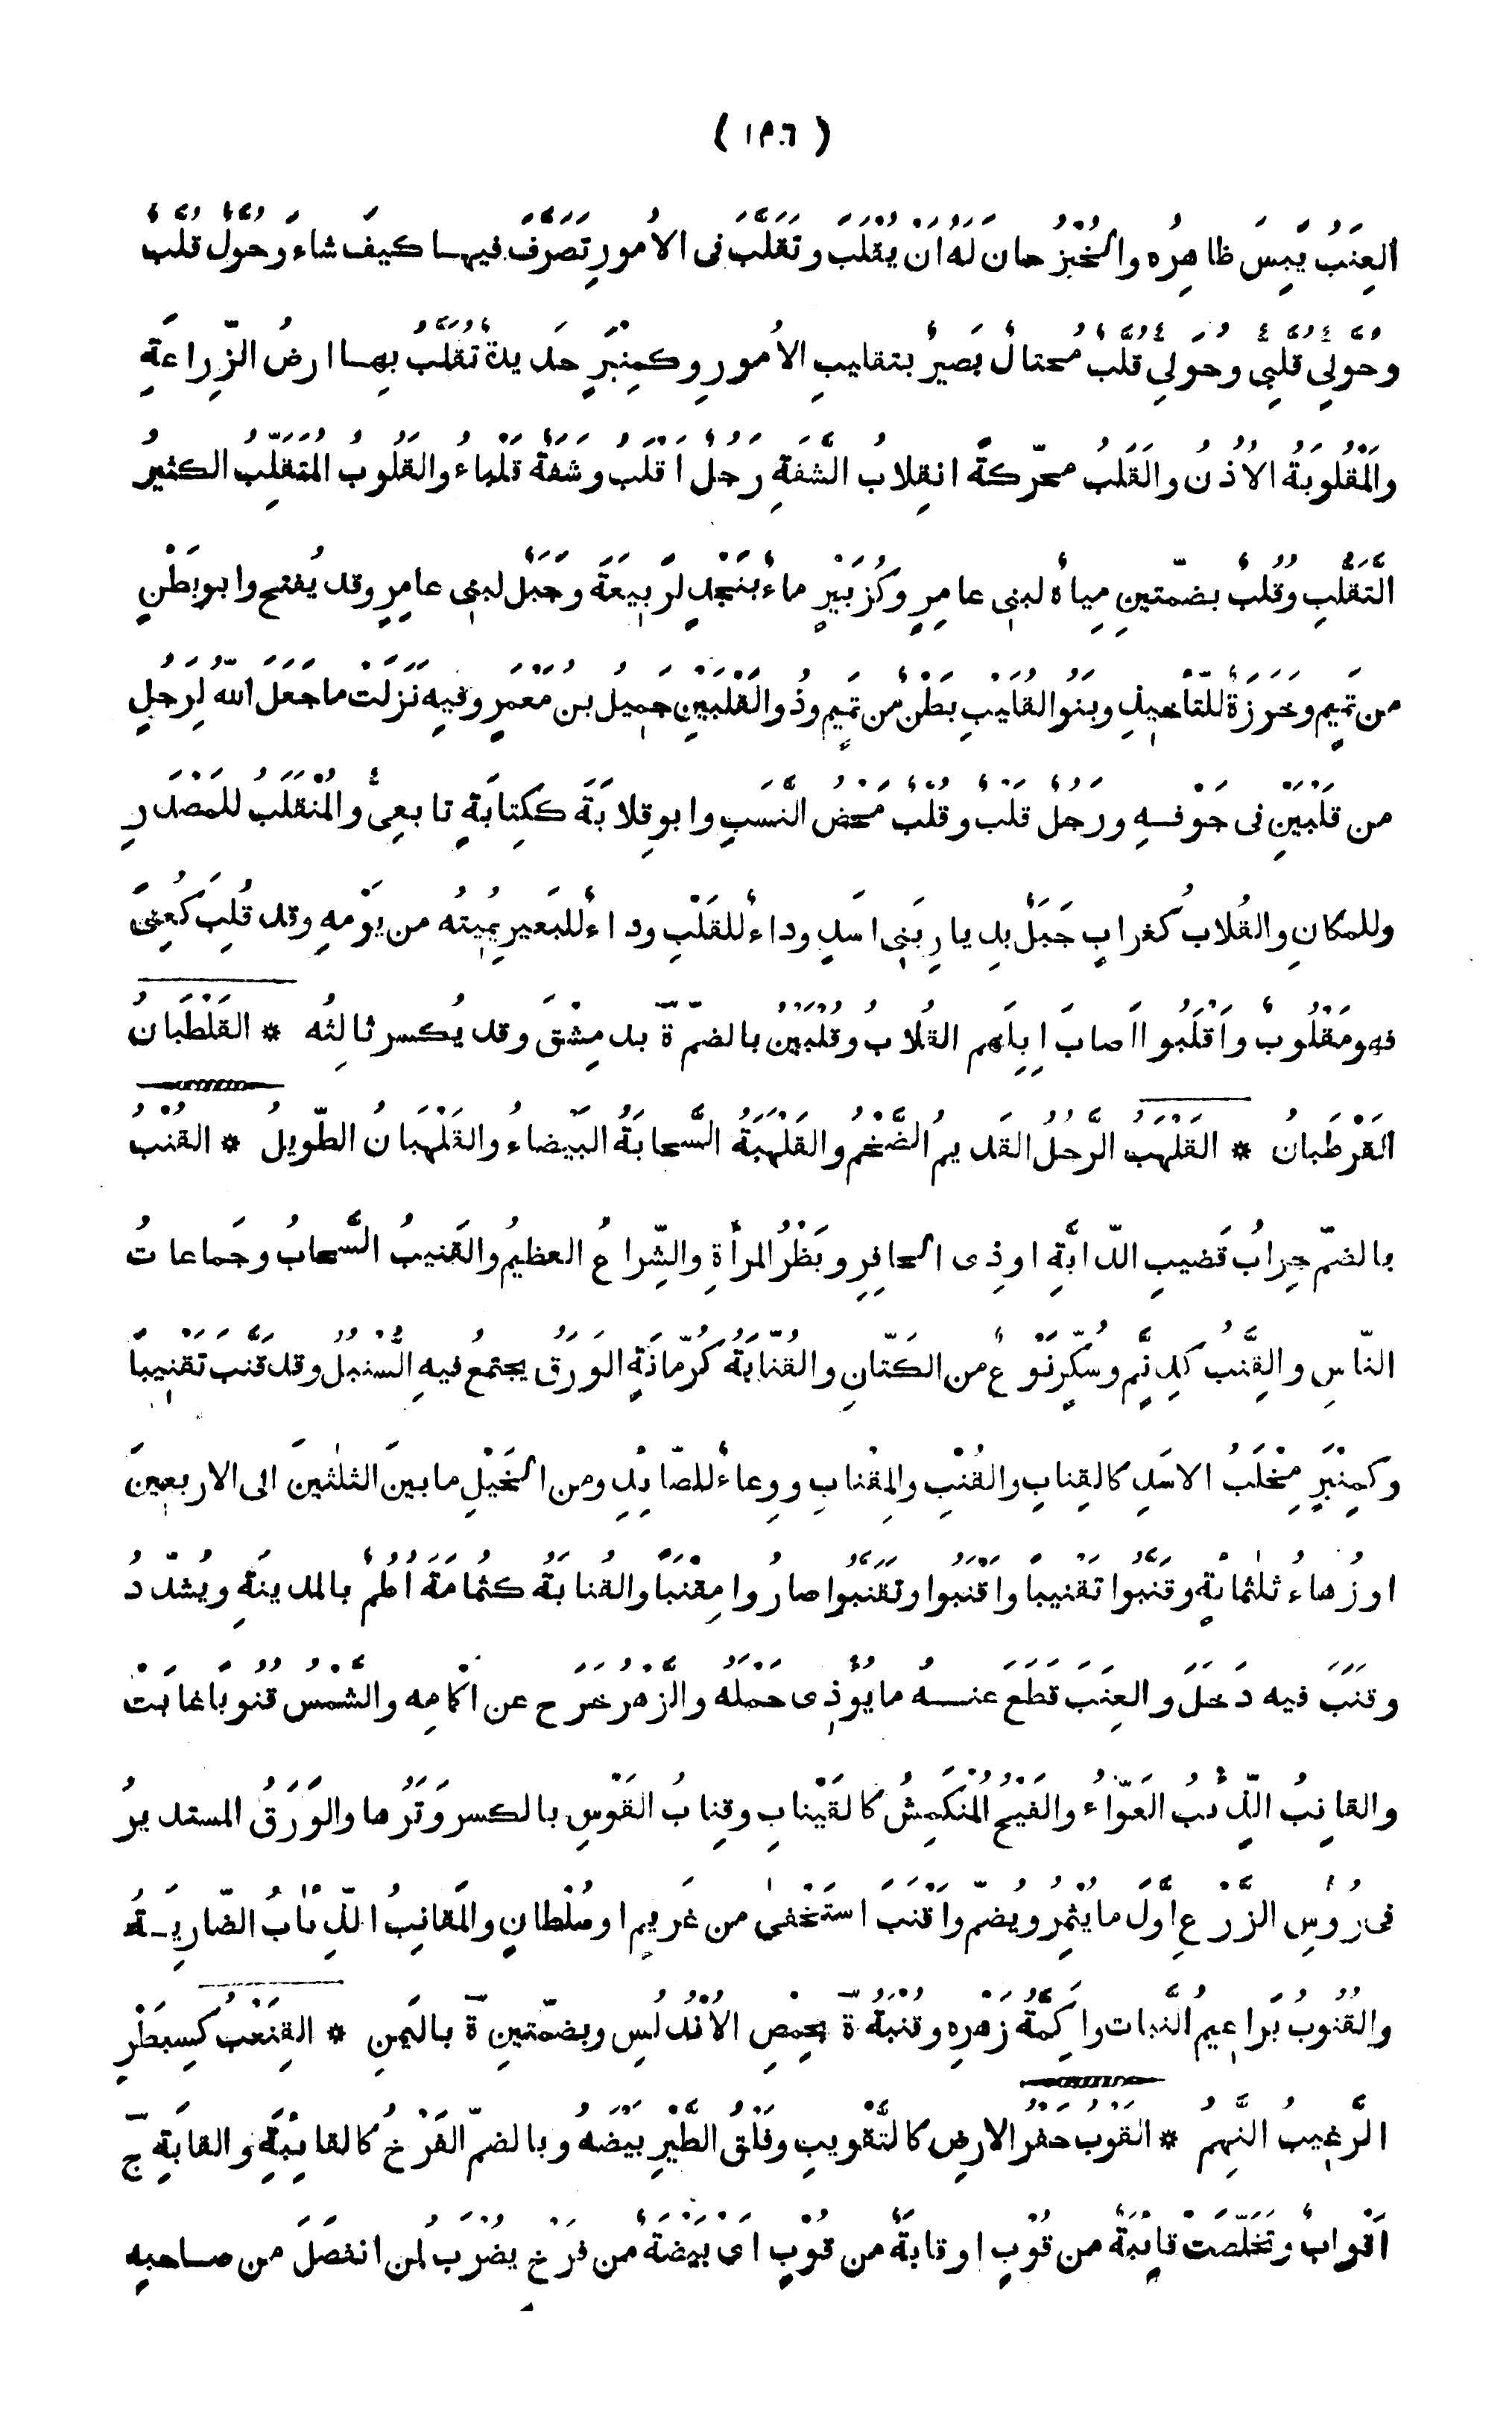 ( ١٢٠٦ )
العِنَبُ يَبِسَ ظاهِرُه والخُبْزُ حانَ لَهُ اَنْ يُقْلَبَ وتَقَلَّبَ فى الاُمُورِ تَصَرَّفَ فيهـا كيفَ شاءَ وحُوَّلٌ قُلَّبٌ
وحُوَّلِىٌّ قُلَّبِىٌّ وحُوَّلِىُّ قُلَّبٍ مُحتالٌ بَصيرٌ بتقليبِ الاُمورِ وكمِنْبَرٍ حَديدةٌ تُقَلَّبُ بِهـا ارضُ الزِّراعَةِ
والمَقْلُوبَةُ الاُذُنُ والقَلَبُ محرّكةً انقِلابُ الشَّفَةِ رَجُلٌ اَقْلَبُ وشَفَةٌ قَلْباءُ والقَلُوبُ المُتَقَلِّبُ الكثيرُ
التَّقَلُّبِ وقُلُبٌ بضمّتينِ مِياهٌ لبنى عامِرٍ وكزُبَيْرٍ ماءٌ بنَجْدٍ لرَبيعَةَ وجَبَلٌ لبنى عامِرٍ وقد يُفتح وابو بَطْنٍ
من تَميمٍ وخَرَزَةٌ للتَأخيذِ وبَنُو القُلَيْبِ بَطْنٌ من تَميمٍ وذُو القَلْبَيْنِ جَميلُ بنُ مَعْمَرٍ وفيهِ نَزَلَتْ ما جَعَلَ اللّهُ لِرَجُلٍ
من قَلْبَيْنِ فى جَوْفـهِ ورَجُلٌ قَلْبٌ وقُلْبٌ محضُ النَّسَبِ وابو قِلابَةَ ككِتابَةٍ تابعِىٌّ والمُنْقَلَبُ للمَصْدَرِ
وللمكانِ والقُلابُ كغُرابٍ جَبَلٌ بدِيارِ بَنى اسَدٍ وداءٌ للقَلْبِ وداءٌ للبَعيرِ يُميتُه من يَوْمهِ وقد قُلِبَ كعُنِىَ
فهو مَقْلُوبٌ واَقْلَبُوا اَصابَ اِبِلَهم القُلابُ وقُلْبَيْنُ بالضمّ ةٌ بدِمِشْقَ وقد يُكسر ثالِثُه * القَلْطَبانُ
القَرْطَبانُ * القَلْهَبُ الرَّجُلُ القَديمُ الضَّخْمُ والقَلْهَبَةُ السَّحابَةُ البَيْضاءُ والقَلْهَبانُ الطَّويلُ * القُنْبُ
بالضمّ جِرابُ قَضيبِ الدّابَّةِ او ذِى الحافِرِ وبَظْرُ المرأةِ والشِّراعُ العظيمُ والقَنيبُ السَّحابُ وجَماعاتُ
النّاسِ والقِنَّبُ كدِنَّمٍ وسُكَّرٍ نَوْعٌ من الكَتّانِ والقُنّابَةُ كرُمّانَةٍ الوَرَقُ يجتمعُ فيهِ السُّنْبُلُ وقد قَنَّبَ تَقْنيبًا
وكمِنْبَرٍ مِخْلَبُ الاسَدِ كالقِنابِ والقُنْبِ والمِقْنابِ ووِعاءٌ للصّائِدِ ومن الخَيْلِ ما بينَ الثلٰثينَ الى الاربعينَ
او زُهاءُ ثلٰثمائةٍ وقَنَّبُوا تَقْنيبًا واَقْنَبُوا وتَقَنَّبُوا صارُوا مِقْنَبًا والقُنابَةُ كثُمامَةَ اُطُمٌ بالمدينَةِ ويُشدَّدُ
وقَنَبَ فيه دَخَلَ والعِنَبَ قَطَعَ عنـهُ ما يُؤْذِى حَمْلَهُ والزَّهْرُ خَرَجَ عن اَكْمامِه والشَّمْسُ قُنُوبًا غابَتْ
والقانِبُ الذِّئبُ العَوّاءُ والفَيْجُ المُنْكَمِشُ كالقَيْنابِ وقِنابُ القَوْسِ بالكسر وَتَرُها والوَرَقُ المستديرُ
فى رُؤُسِ الزَّرْعِ اَوَّلَ ما يُثْمِرُ ويُضمّ واَقْنَبَ استَخْفىٰ من غَريمٍ او سُلْطانٍ والمَقانِبُ الذِّئابُ الضّارِيَـةُ
والقُنُوبُ بَراعيمُ النَّبات واَكِمَّةُ زَهرِه وقُنْبَةُ ةٌ بحِمصِ الاَنْدُلُسِ وبضمّتينِ ةٌ باليَمنِ * القِنَعْبُ كسِبَطْرٍ
الرَّغيبُ النَّهِمُ * القَوْبُ حَفْرُ الارضِ كالتَّقْويبِ وفَلْقُ الطَّيْرِ بَيْضَهُ وبالضمّ الفَرْخُ كالقائِبَةِ والقابَةِ ج
اَقْوابٌ وتَخَلَّصَتْ قائِبَةٌ من قُوْبٍ او قابَةٌ من قُوْبٍ اى بَيْضَةٌ من فَرْخٍ يُضْرَبُ لمن انفَصَلَ من صـاحبِه